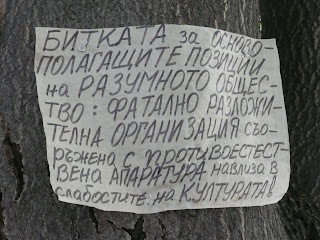 БИТКАТА за ОСНОВО-
ПОЛАГАЩИТЕ ПОЗИЦИИ
на РАЗУМНОТО ОБЩЕС-
ТВО: ФАТАЛНО РАЗЛОЖИ-
ТЕЛНА ОРГАНИЗАЦИЯ съо-
ръжена с противоестест-
вена АПАРАТУРА навлиза в
слабостите на КУЛТУРАТА!